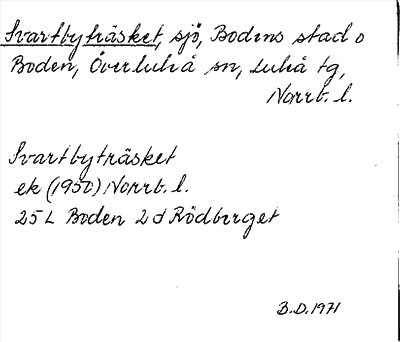 Svartbyträsket, sjö, Bodens stad o
Boden, Överluleå sn, Luleå tg,
Norrb. l.
Svartbyträsket
ek (1950) Norrb. l.
25 L Boden 2 d Rödberget
B.D. 1971